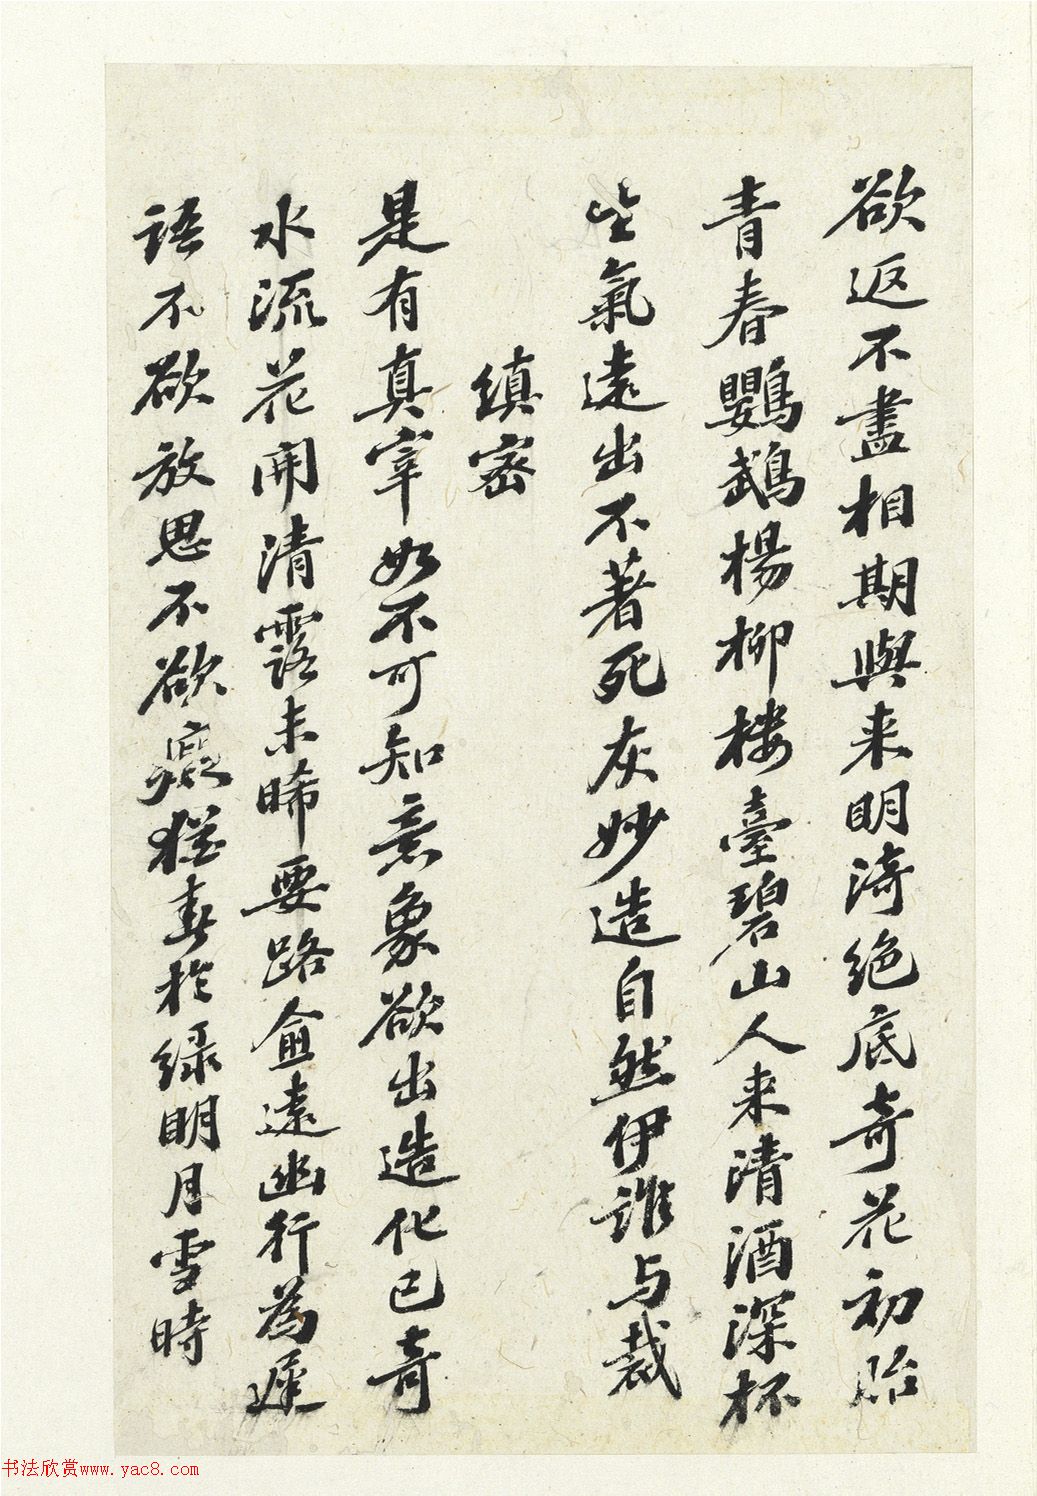 欲返不盡相期與来明漪绝底奇花初胎
青春鸚鵡楊柳楼臺碧山人来清酒深杯
生氣遠出不著死灰妙造自然伊誰与裁
缜密
是有真宰如不可知意象欲出造化已奇
水流花開清露未晞要路愈遠幽行為遲
語不欲放思不欲癡猶春於绿明月雪時
书法欣赏www.yac8.com